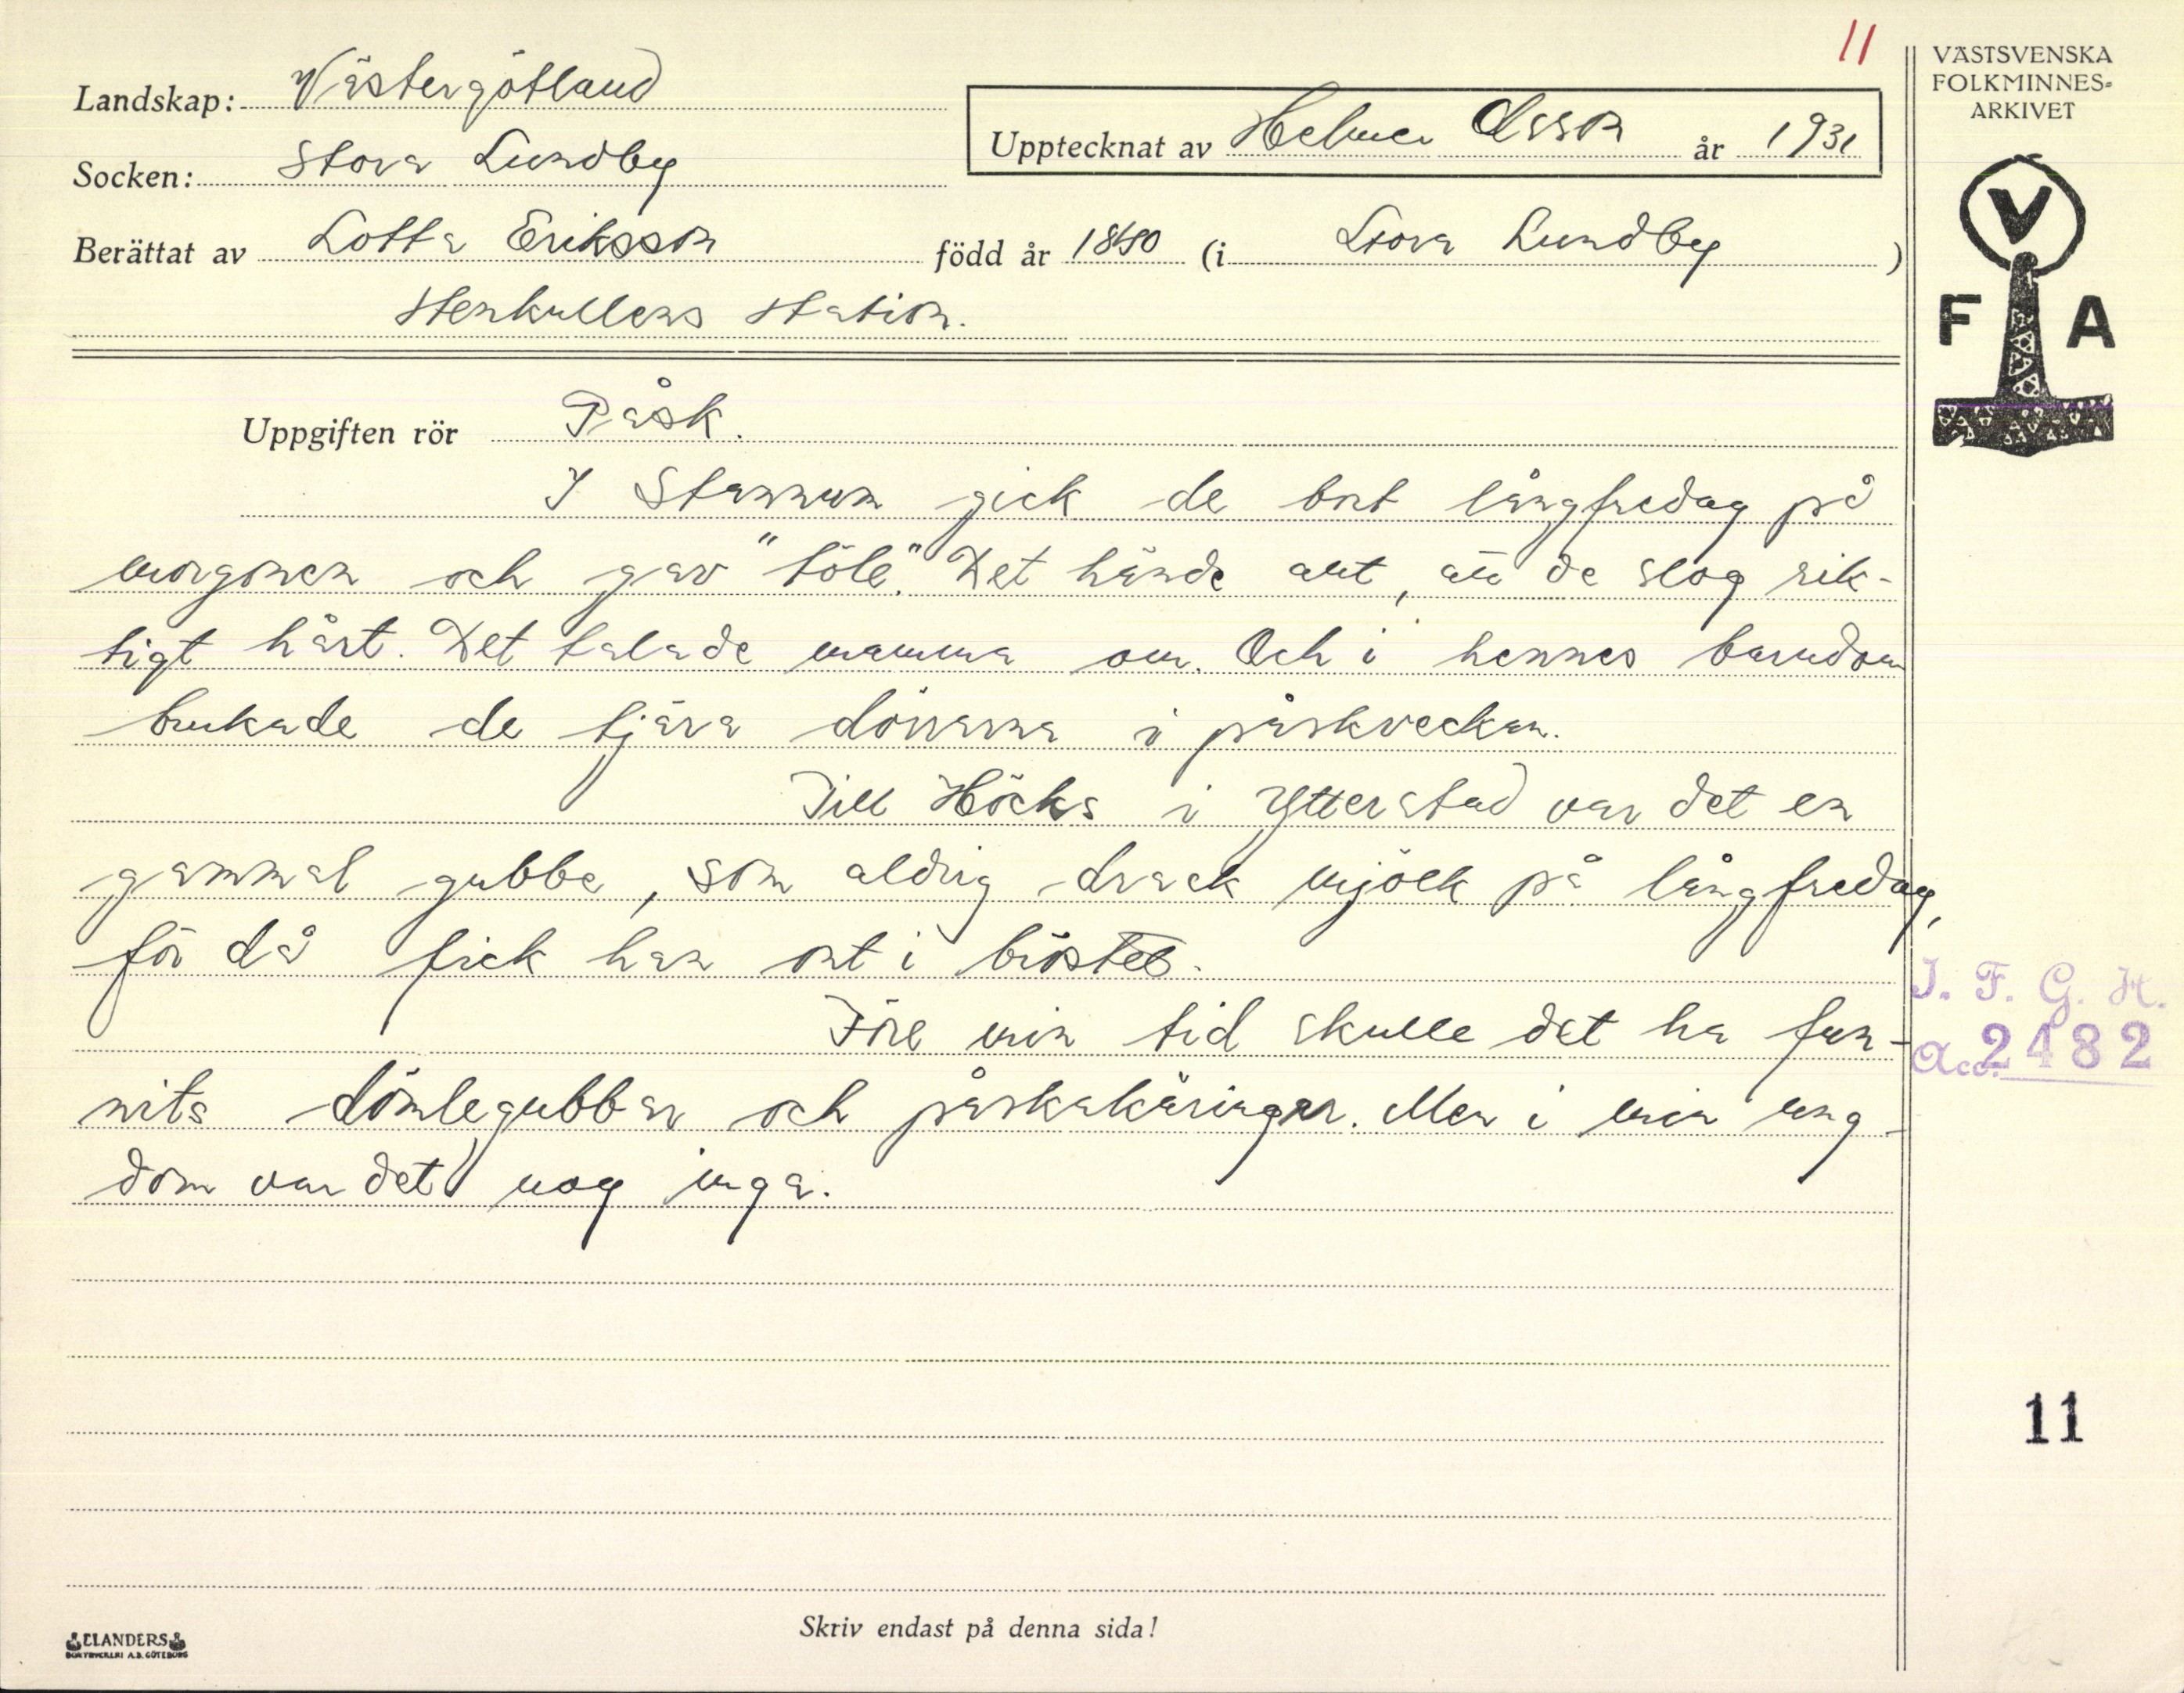 11
VÄSTSVENSKA
FOLKMINNES-
ARKIVET
Landskap: Västergötland
Upptecknat av Helmer Olsson år 1931
Socken: Stora Lundby
Berättat av Lotta Eriksson född år 1840 (i Stora Lundby)
Stenkullens station.
V
F A
Uppgiften rör Påsk.
I Stannum gick de bort långfredag på
morgonen och gav "töle". Det hände att, att de slog rik-
tigt hårt. Det talade mamma om. Och i hennes barndom
brukade de tjära dörrarna i påskveckan.
Till Höcks i Ytterstad var det en
gammal gubbe, som aldrig drack mjölk på långfredag,
för då fick han ont i bröstet.
Före min tid skulle det ha fun-
nits dömlegubbar och påskakäringar. Men i min ung-
dom var det nog inga.
I. F. G. H.
Acc. 2482
11
Skriv endast på denna sida!
ELANDERS
BOKTRYCKERI A.B. GÖTEBORG